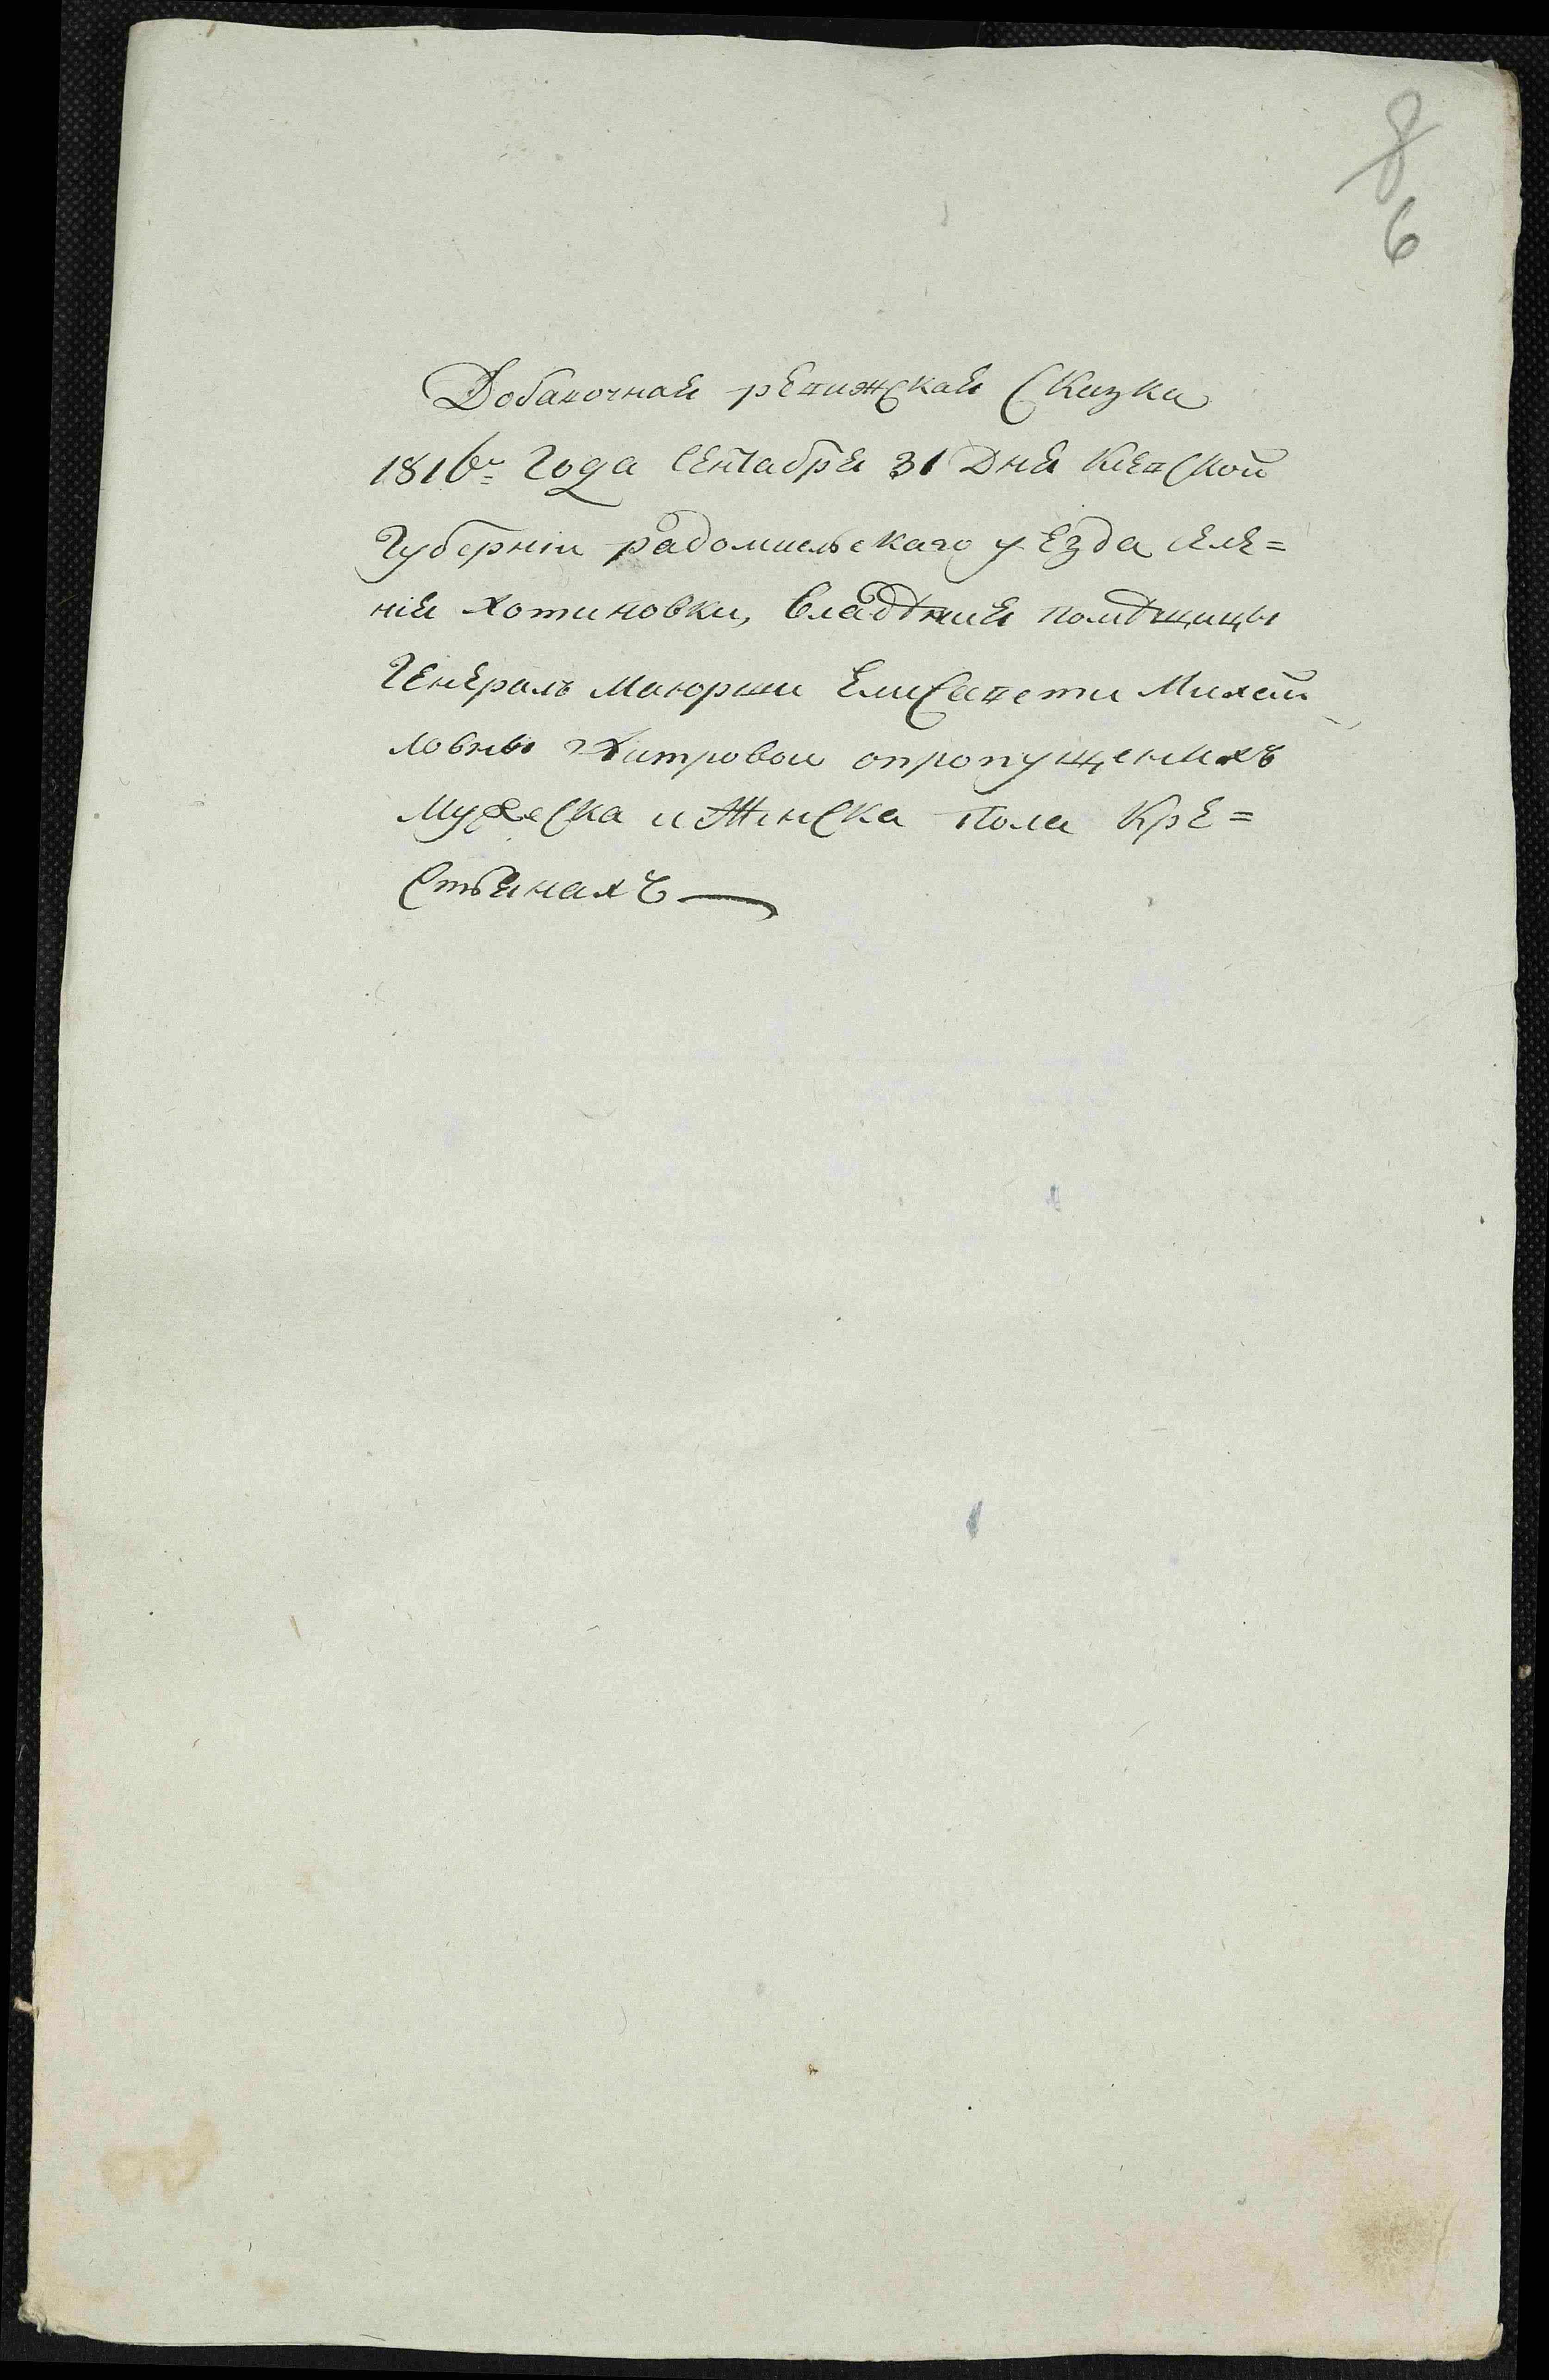 8
6
Добавочная ревижская Сказка
1816го года Сентабря 31 Дня Киевской
Губерніи радомысльскаго уезда селе=
нія хотиновки, владѣния помѣщицы
Генералъ Маиорши Елисавети Михай
ловны Хитровой опропущенихъ
Мужеска и Женска пола Кре=
стьянахъ